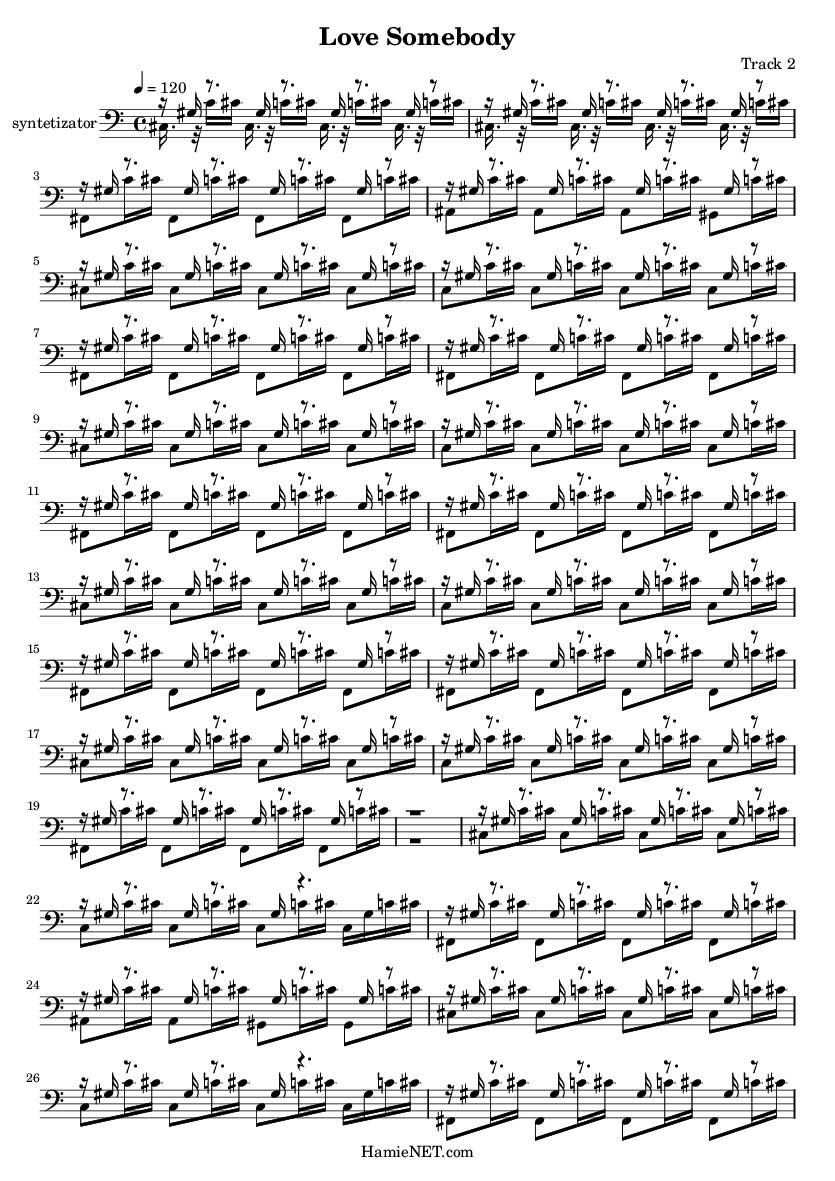 Love Somebody
Track 2
= 120
syntetizator
3
5
7
9
11
13
15
17
19
22
24
26
HamieNET.com